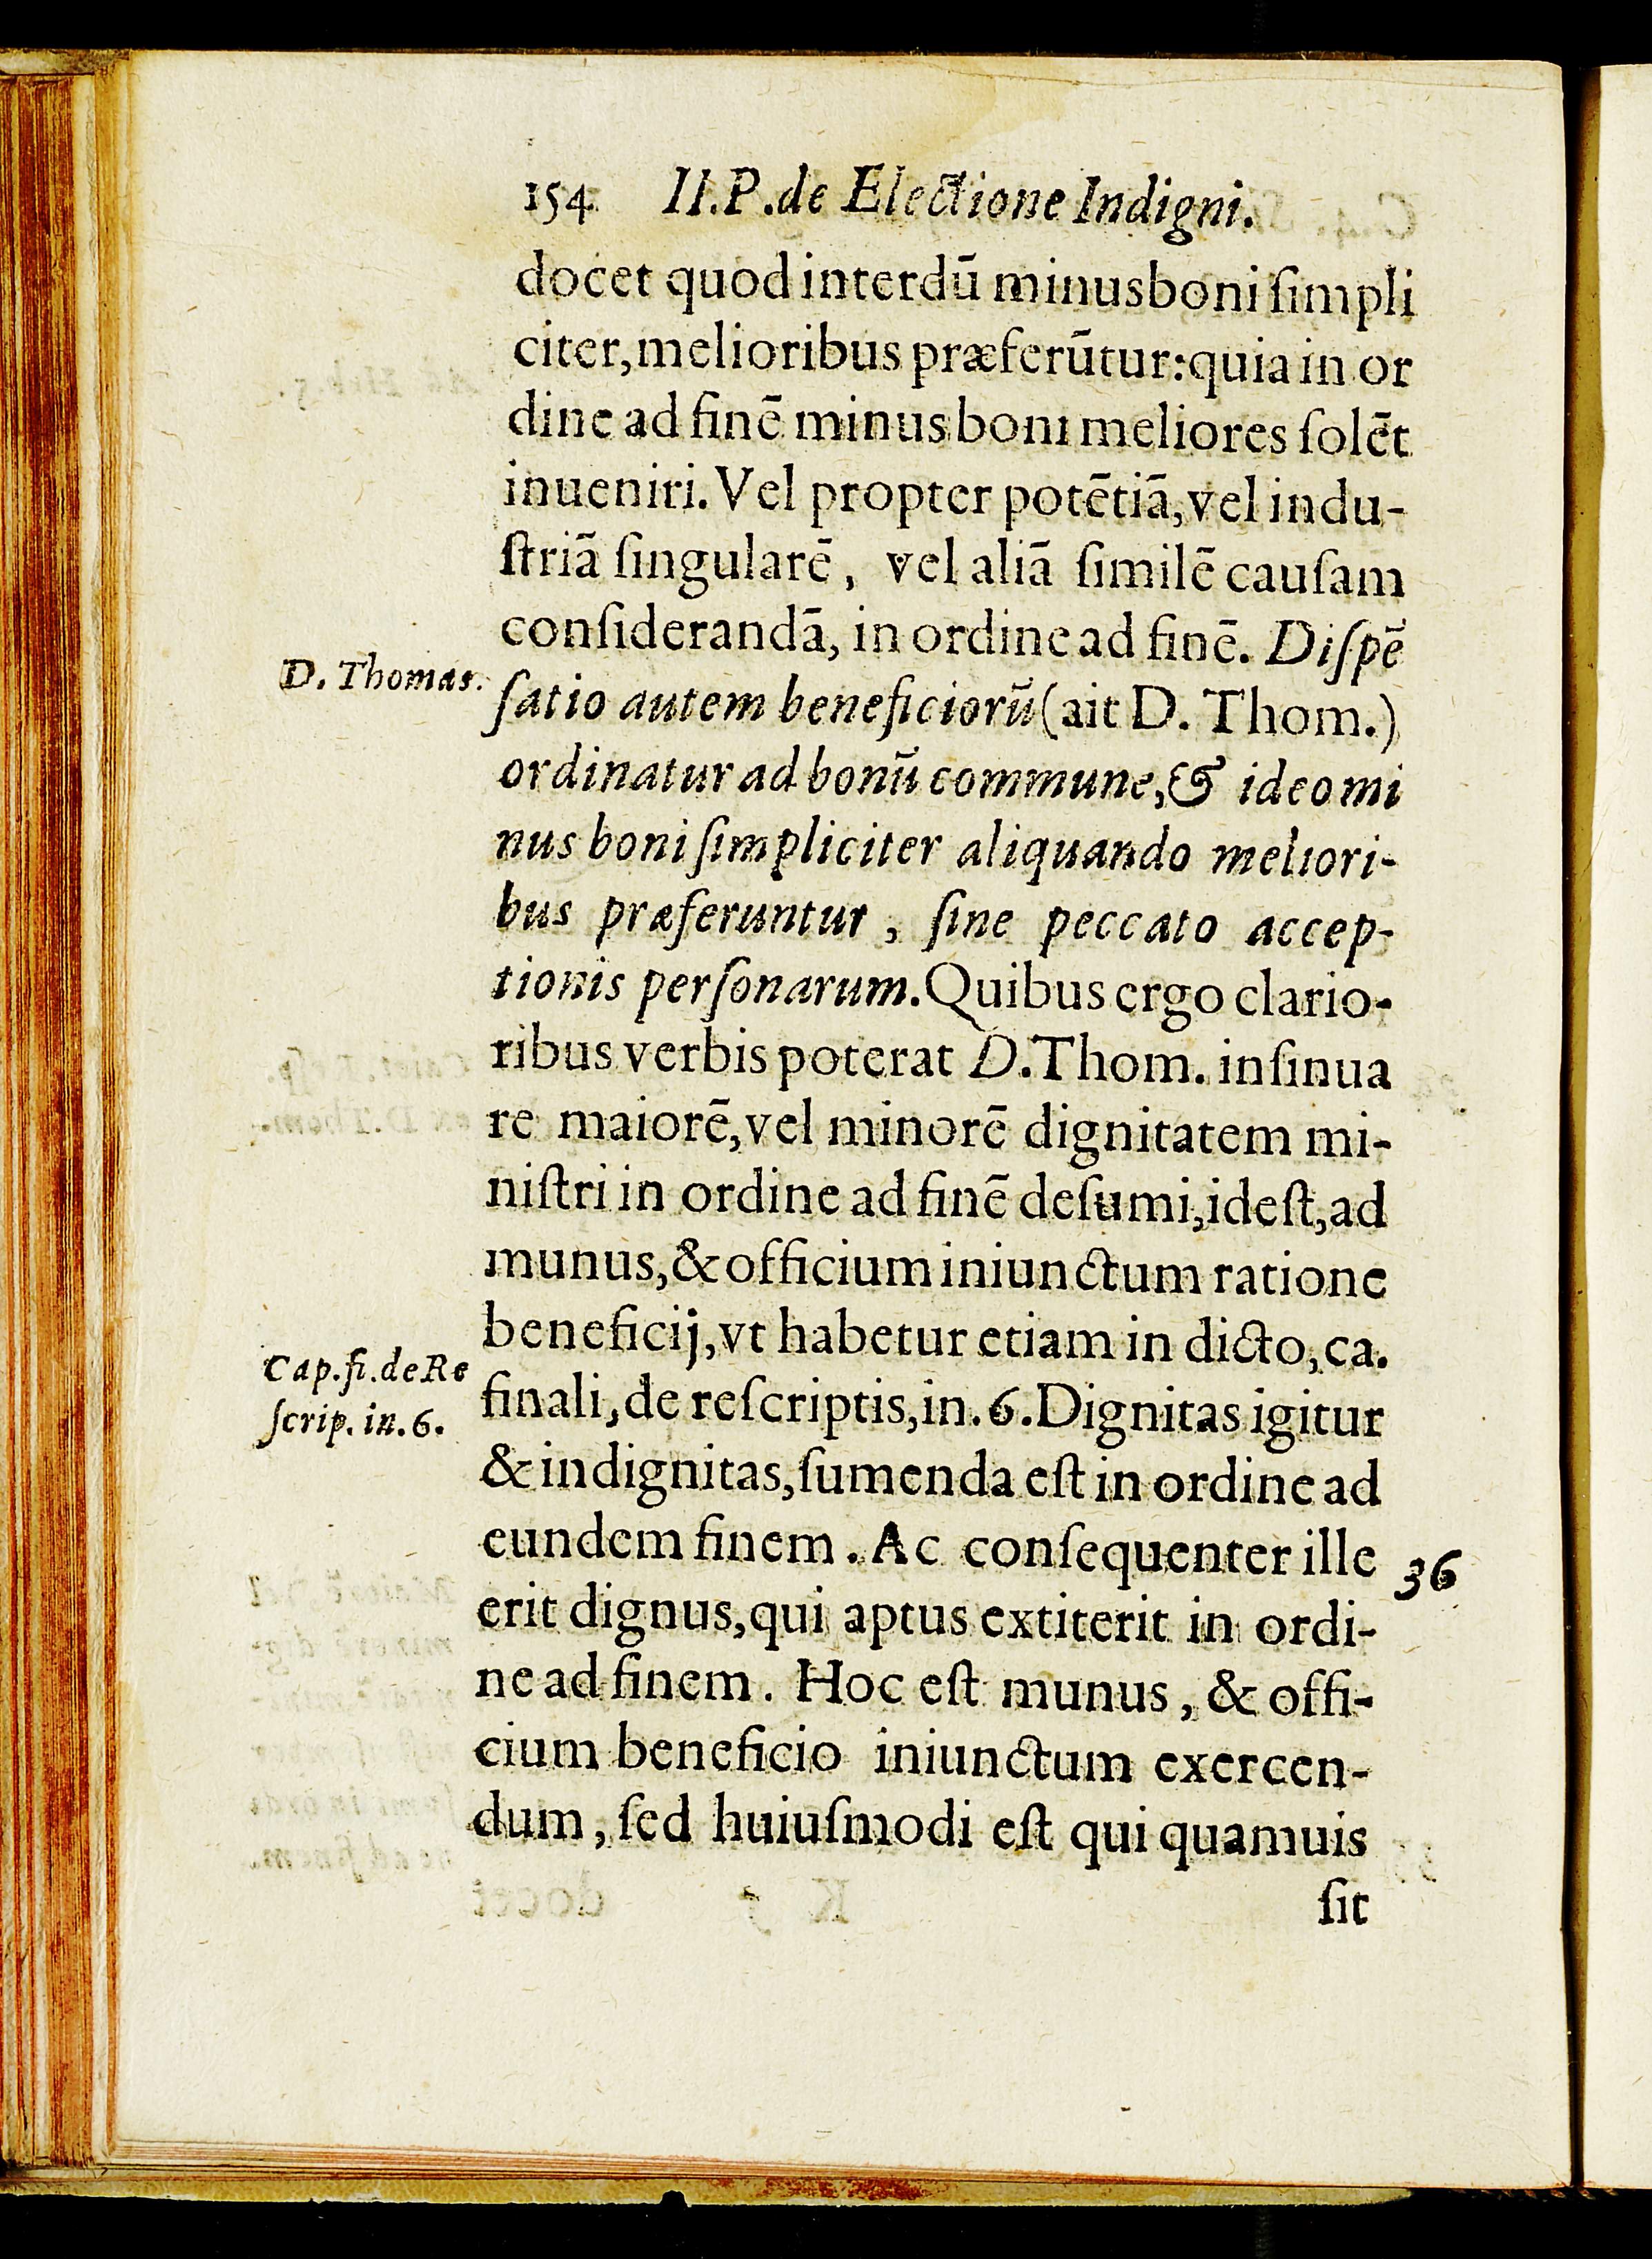 154 II.P.de Electione Indigni.
docet quod interdū minus boni ſimpli
citer, melioribus præferūtur: quia in or
dine ad finē minus boni meliores ſolēt
inueniri. Vel propter potētiā, vel indu-
ſtriā ſingularē, vel aliā ſimilē cauſam
considerandā, in ordine ad finē. Diſpē
D. Thomas.
ſatio autem beneficiorū (ait D. Thom.)
ordinatur ad bonū commune, & ideo mi
nus boni ſimpliciter aliquando meliori-
bus præferuntur, ſine peccato accep-
tionis perſonarum. Quibus ergo clario-
ribus verbis poterat D. Thom. inſinua
re maiorē, vel minorē dignitatem mi-
niſtri in ordine ad finē deſumi, ideſt, ad
munus, & officium iniunctum ratione
beneficij, vt habetur etiam in dicto, ca.
Cap. fi. de Re
ſcrip. in. 6.
finali, de reſcriptis, in. 6. Dignitas igitur
& indignitas, ſumenda eſt in ordine ad
eundem finem. Ac conſequenter ille
36
erit dignus, qui aptus extiterit in ordi-
ne ad finem. Hoc eſt munus, & offi-
cium beneficio iniunctum exercen-
dum, ſed huiuſmodi eſt qui quamuis
ſit